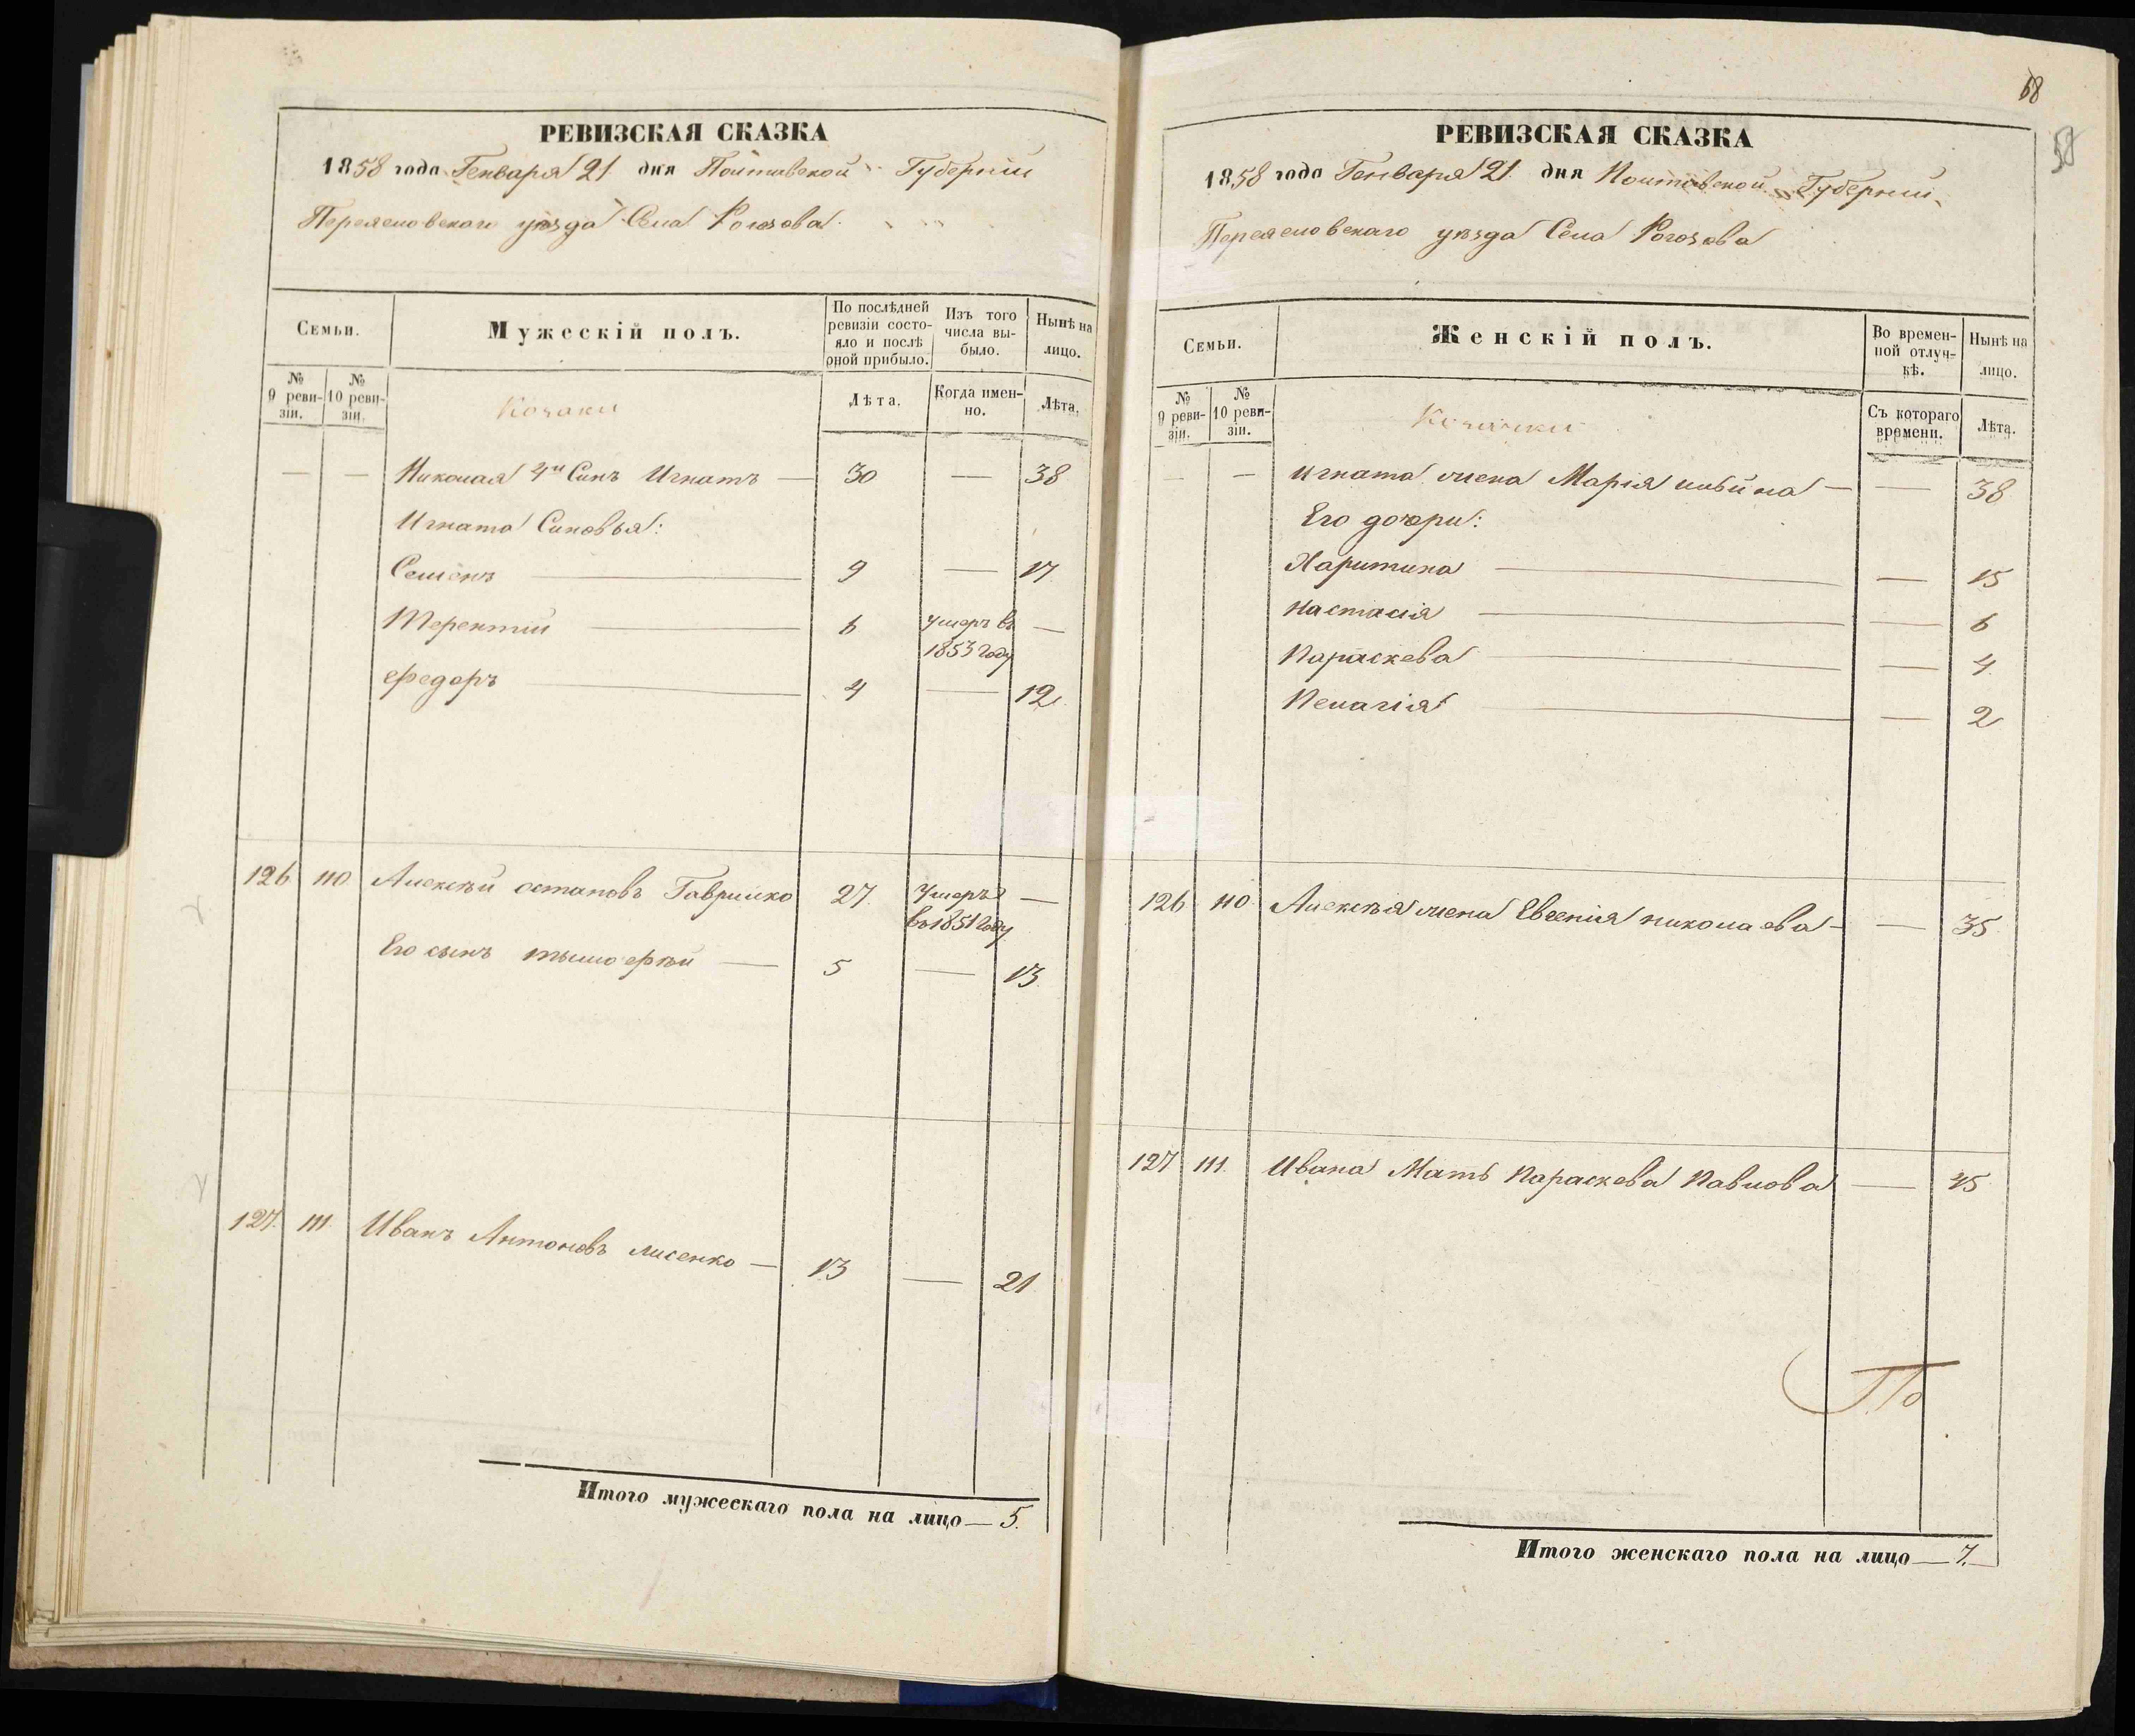 РЕВИЗСКАЯ СКАЗКА
1858 года Генваря 21 дня Полтавской Губернии
Переясловскаго уѣзда Села Рогозова
Семьи.
Мужескій полъ.
По послѣдней ревизіи состояло и послѣ оной прибыло.
Изъ того числа выбыло.
Нынѣ на лицо.
№ 9 ревизіи.
№ 10 ревизіи.
Козаки
Лѣта.
Когда именно.
Лѣта.
— — Николая 4й Синъ Игнатъ — 30 — 38
Игната Синовья:
Семенъ — 9 — 17
Терентий — 6 Умеръ въ 1853 году —
Федоръ — 4 — 12
126 110 Алексѣй остаповъ Гаврилко 27. Умеръ въ 1851 году —
Его сынъ тымофѣй — 5 — 13.
127. 111 Иванъ Антоновъ лисенко — 13 — 21
Итого мужескаго пола на лицо — 5.
68
58
РЕВИЗСКАЯ СКАЗКА
1858 года Генваря 21 дня Полтавской Губернии
Переясловскаго уѣзда Села Рогозова
Семьи.
Женскій полъ.
Во временной отлучкѣ.
Нынѣ на лицо.
№ 9 ревизіи.
№ 10 ревизіи.
Козачки
Съ котораго времени.
Лѣта.
— — Игната жена Марія — — 38
Его дочери:
Харитина — — 15
Настасія — — 6
Параскева — — 4.
Пелагія — — 2
126 110 Алексѣя жена Евгенія николаева — — 35.
127 111. Ивана Мать Параскева Павлова — 45
По
Итого женскаго пола на лицо — 7.